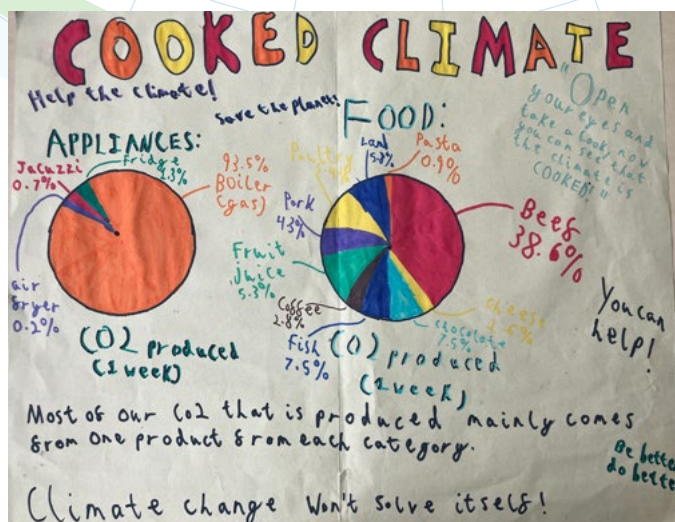 COOKED CLIMATE
Help the climate!
Save the planet!
"Open
your eyes and
take a look, now
you can see that
the climate is
COOKED!"
APPLIANCES:
Jacuzzi
0.7%
fridge
93.5%
Boiler
(gas)
air
fryer
0.2%
CO2 produced
(1 week)
FOOD:
Poultry
Lamb
Pasta
0.9%
Beef
38.6%
Pork
4.3%
Fruit
juice
5.3%
Coffee
2.8%
Fish
7.5%
chocolate
7.5%
cheese
CO2 produced
(1 week)
You can
help!
Most of our Co2 that is produced mainly comes
from one product from each category.
Be better
do better
Climate change won't solve itself!